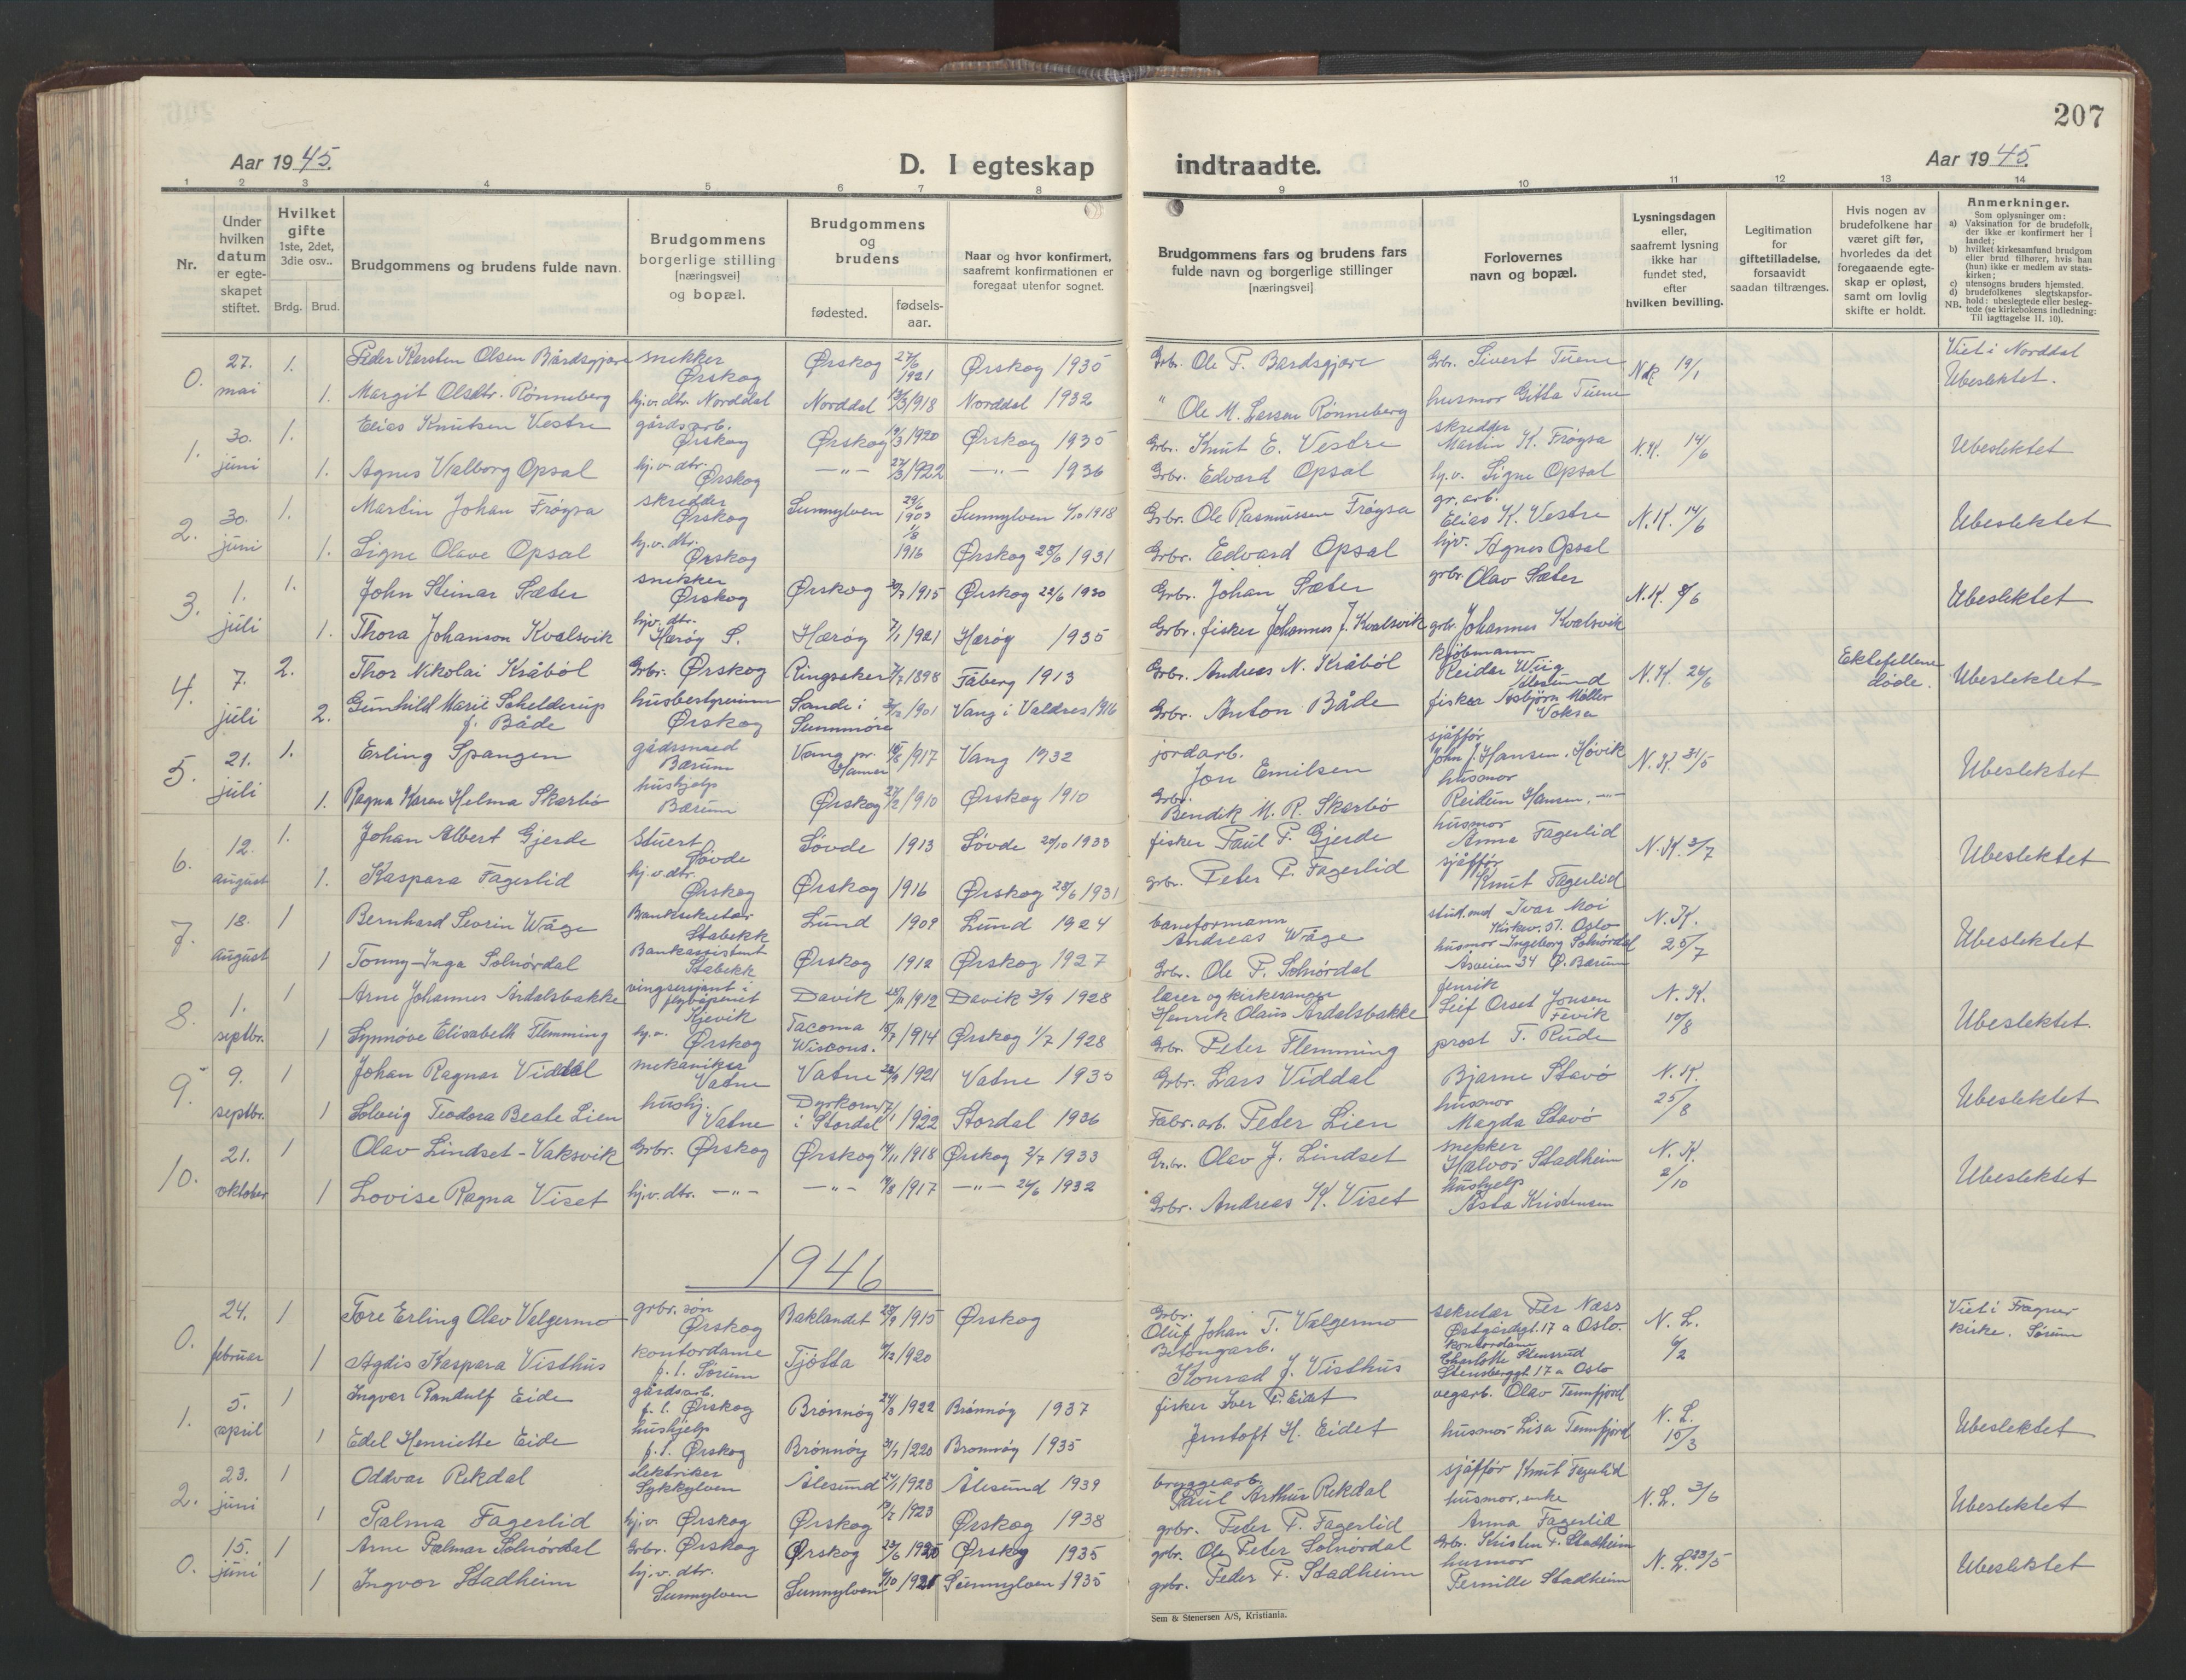 207
Aar 1945.
D. I egteskap indtraadte.
Aar 1945.
1 2 3 4 5 6 7 8 9 10 11 12 13 14
Nr.
Under hvilken datum er egteskapet stiftet.
Hvilket gifte 1ste, 2det, 3die osv..
Brdg. Brud.
Brudgommens og brudens fulde navn.
Brudgommens borgerlige stilling [næringsvei] og bopæl.
Brudgommens og brudens
fødested. fødsels-aar.
Naar og hvor konfirmert, saafremt konfirmationen er foregaat utenfor sognet.
Brudgommens fars og brudens fars fulde navn og borgerlige stillinger [næringsvei]
Forlovernes navn og bopæl.
Lysningsdagen eller, saafremt lysning ikke har fundet sted, efter hvilken bevilling.
Legitimation for giftetilladelse, forsaavidt saadan tiltrænges.
Hvis nogen av brudefolkene har været gift før, hvorledes da det foregaaende egteskap er opløst, samt om lovlig skifte er holdt.
Anmerkninger.
Som oplysninger om:
a) Vaksination for de brudefolk, der ikke er konfirmert her i landet;
b) hvilket kirkesamfund brudgom eller brud tilhører, hvis han (hun) ikke er medlem av statskirken;
c) utensogns bruders hjemsted.
d) brudefolkenes slegtskapsforhold: ubeslegtede eller beslegtede (se kirkebokens indledning: Til iagttagelse II. 10).
NB.
0. 27. mai 1. Peder Karsten Olsen Bårdsgjøre snekker Ørskog Ørskog 27/6 1921 Ørskog 1935 Grb. Ole P. Bardsgjøre Grb. Sivert Tuene N.K. 19/1 Viet i Norddal
1. Margit Olsdtr. Rønneberg hj.v. dtr. Norddal Norddal /3 1918 Norddal 1932 " Ole M. Larsen Rønneberg husmor Gitta Tuene Ubeslektet.
1. 30. juni 1. Elias Knutsen Vestre gårdsarb. Ørskog Ørskog /3 1920 Ørskog 1935 Grbr. Knut E. Vestre skredder Martin K. Frøysa N.K. 14/6 Ubeslektet
1. Agnes Valborg Opsal hj.v. dtr. Ørskog —"— 27/3 1922 —"— 1936 Grbr. Edvard Opsal hj.v. Signe Opsal
2. 30. juni 1. Martin Johan Frøysa skredder Ørskog Sunnylven 29/6 1903 Sunnylven 6/10 1918 Grbr. Ole Rasmussen Frøysa gr. arb. Elias K. Vestre N.K. 14/6 Ubeslektet
1. Signe Olave Opsal hj.v. dtr. Ørskog 1/8 1916 Ørskog 28/6 1931 Grbr. Edvard Opsal hjv. Agnes Opsal
3. 1. juli 1. John Steinar Sæter snekker Ørskog Ørskog 30/7 1915 Ørskog 22/6 1930 Grbr. Johan Sæter grbr Olav Sæter N.K. 8/6 Ubeslektet
1. Thora Johanson Kvalsvik hjv. dtr. Herøy S. Hærøy 7/1 1921 Hærøy 1935 Grbr. fisker Johannes J. Kvalsvik grb. Johannes Kvalsvik
4. 7. juli 2. Thor Nikolai Kråbøl Grbr. Ørskog Ringsaker 7/7 1898 Fåberg 1913 Grbr. Andreas N. Kråbøl kjøbmann Reidar Wiig Ålesund N.K. 26/6 Ektefellene døde. Ubeslektet
2. Gunhild Marie Schelderup f. Både husbestyrerinne Ørskog Sande i Sunnmøre /2 1901 Vang i Valdres 1916 Grbr. Anton Både fisker Asbjørn Møller Voksa
5. 21. juli 1. Erling Spangen gårdsmed Bærum Vang pr. Hamar /8 1917 Vang 1932 jordarb. Jon Emilsen sjåffør John J. Hansen, Høvik N.K. 31/5 Ubeslektet
1. Ragna Karen Helma Skarbø hushjelp Bærum Ørskog 27/2 1910 Ørskog 1910 Grbr. Bendik M. R. Skarbø husmor Reidun Hansen, —"—
6. 12. august 1. Johan Albert Gjerde Stuert Søvde Søvde 1913 Søvde 29/10 1933 fisker Paul P. Gjerde husmor Anna Fagerlid N.K. 3/7 Ubeslektet
1. Kaspara Fagerlid hj.v. dtr. Ørskog Ørskog 1916 Ørskog 28/6 1931 grbr. Peter P. Fagerlid sjåffør Knut Fagerlid
7. 18. august 1 Bernhard Severin Wåge Banksekretær Stabekk Lund 1909 Lund 1924 baneformann Andreas Wåge stud. med Ivar Moi Kirkev. 57. Oslo N.K. 25/7 Ubeslektet
1 Tonny-Inga Solnørdal Bankassistent Stabekk Ørskog 1912 Ørskog 1927 Grbr. Ole P. Solnørdal husmor Ingeborg Solnørdal Åsveien 34 Ø. Bærum
8. 1. septbr. 1 Arne Johannes Årdalsbakke vingsersjant i flyvåpenet Kjevik Davik 1912 Davik 2/9 1928 lærer og kirkesanger Henrik Olaus Årdalsbakke fenrik Leif Orset Jonsen Fevik N.K. 10/8 Ubeslektet.
1 Synnøve Elisabeth Flemming hj.v. Ørskog Tacoma Wiscons. /7 1914 Ørskog 1/7 1928 Grbr. Peter Flemming prost T. Rude
9. 9. septbr. 1 Johan Ragnar Viddal mekaniker Vatne Vatne 1921 Vatne 1935 Grbr. Lars Viddal Bjarne Stavø N.K. 25/8 Ubeslektet
1 Solveig Teodora Beate Lien hushj. Vatne Dyrkorn i Stordal 1922 Stordal 1936 Fabr. arb. Peter Lien husmor Magda Stavø
10. 21. oktober 1 Olav Lindset-Vaksvik Grbr. Ørskog Ørskog /11 1918 Ørskog 2/7 1933 Grbr. Olav J. Lindset snekker Halvor Stadheim N.K. 2/10 Ubeslektet
1 Lovise Ragna Viset hj.v. dtr. —"— —"— /8 1917 —"— 26/6 1932 Grbr. Andreas K. Viset hushjelp Asta Kristensen
1946
0. 24. februar 1 Tore Erling Olav Valgermo grbr. søn Ørskog Baklandet 28/9 1915 Ørskog Grbr. Oluf Johan T. Valgermo sekretær Per Næss Østgårdsgt. 17 a Oslo. N.L. 6/2 Viet i Frogner kirke. Sørum
1 Agdis Kaspara Visthus kontordame f.t. Sørum Tjøtta /12 1920 Betongarb. Konrad J. Visthus kontordame Charlotte Stensrud Stensberggt. 17 a Oslo
1. 5. april 1 Ingvar Randulf Eide gårdsarb. f.t. Ørskog Brønnøy 24/3 1922 Brønnøy 1937 fisker Iver P. Eidet vegarb. Olav Tennfjord N.L. 15/3 Ubeslektet
1 Edel Henriette Eide hushjelp f.t. Ørskog Brønnøy 1220 Brønnøy 1935 Jentoft H. Eidet husmor Lisa Tennfjord
2. 23. juni 1 Oddvar Rekdal elektriker Sykkylven Ålesund 24/1 1923 Ålesund 1939 bryggearb. Paul Arthur Rekdal sjåffør Knut Fagerlid N.L. 3/6 Ubeslektet
1 Palma Fagerlid hj.v. Ørskog Ørskog 1923 Ørskog 1938 grbr. Peter P. Fagerlid husmor, enke Anna Fagerlid
0. 15. juni 1 Arne Palmar Solnørdal Grbr. Ørskog Ørskog 23/6 1920 Ørskog 1935 grbr. Ole Peter Solnørdal Grbr. Kristen P. Stadheim N.L. 23/5 Ubeslektet
1 Ingvor Stadheim hj.v. dtr. Sunnylven Sunnylven /10 1921 Sunnylven 1935 grbr. Peder P. Stadheim husmor Pernille Stadheim
Sem & Stenersen A/S, Kristiania.